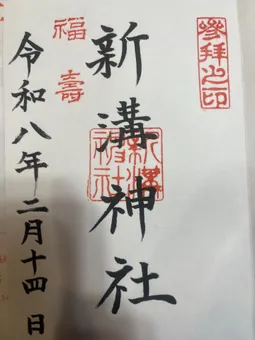 參拜之印
新溝神社
新溝
神社
福壽
令和八年二月十四日